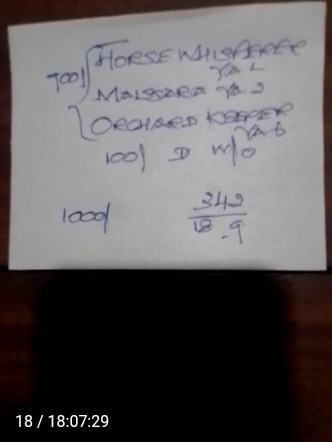 700/ HORSE WHISPERER
RA 1
MALSSARA RA 2
ORCHARD KEEPER
RA 6
100/ D W/O
1000/ 342
18.9
18 / 18:07:29